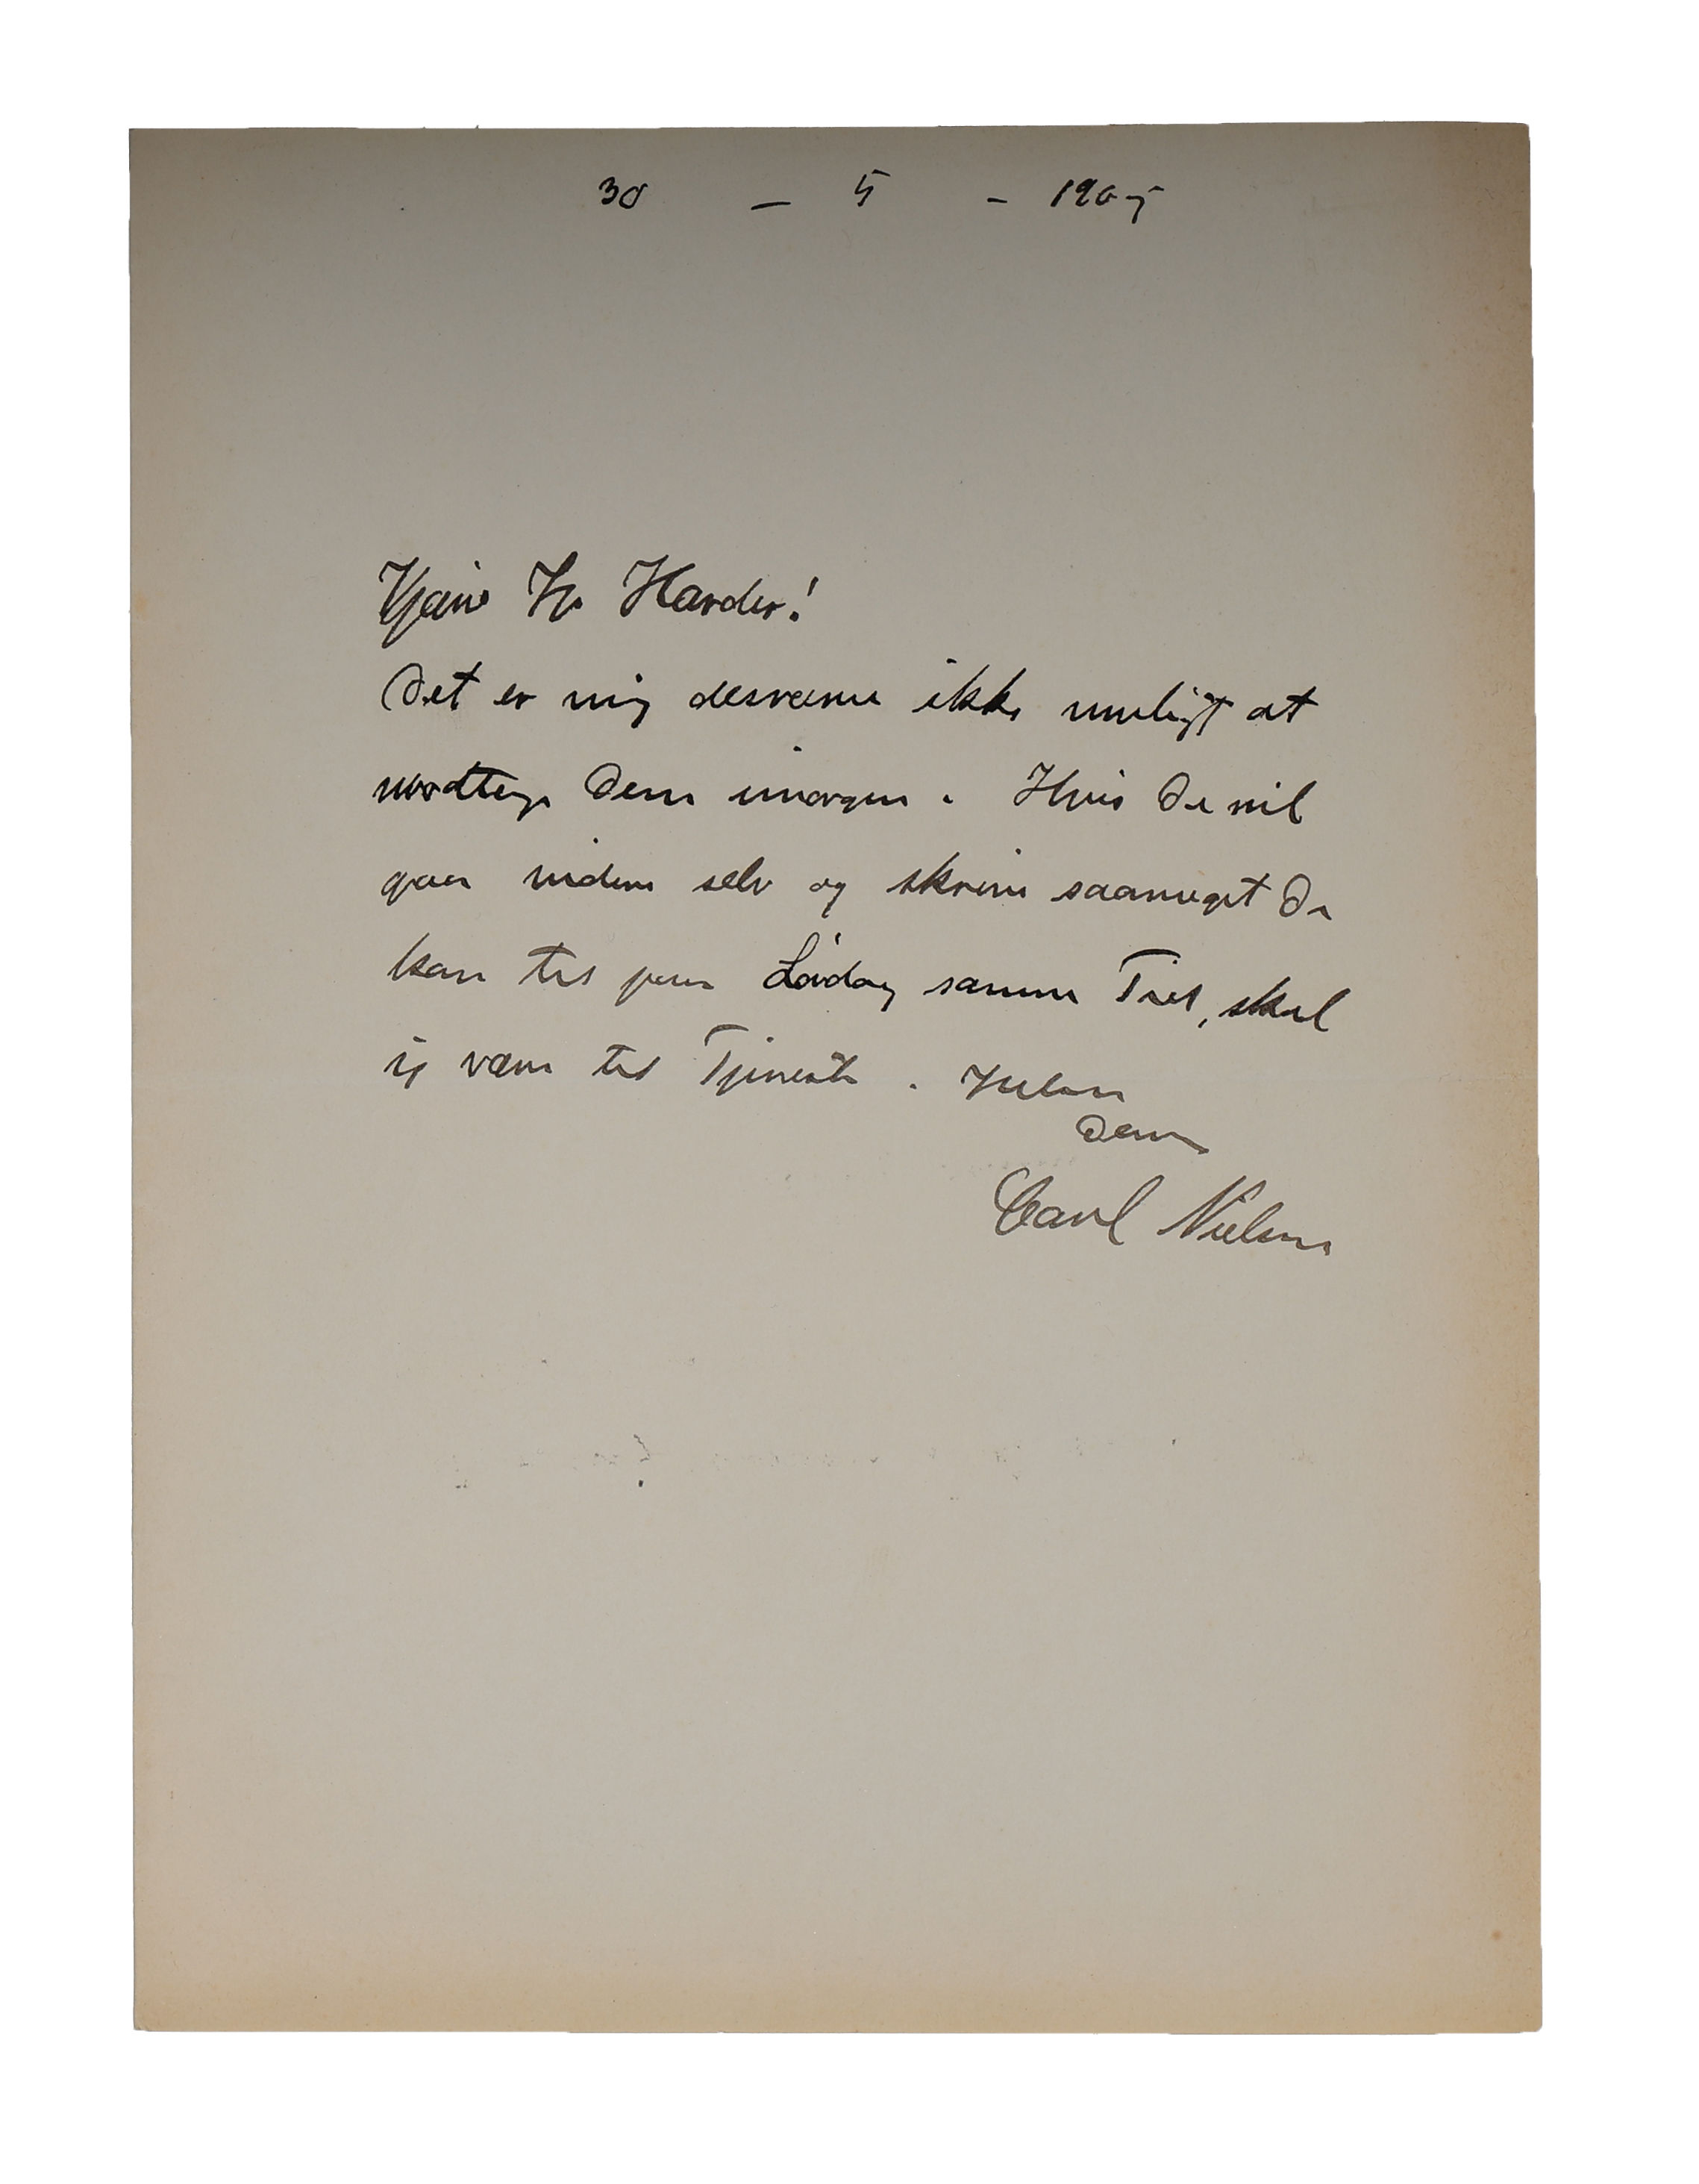 30 - 5 - 1905
Kjære Hr Harder!
Det er mig desværre ikke muligt at
modtage Dem imorgen. Hvis De vil
gaa videre selv og skrive saameget De
kan til paa Lördag samme Tid, skal
jeg være til Tjeneste. Hilsen
Deres
Carl Nielsen